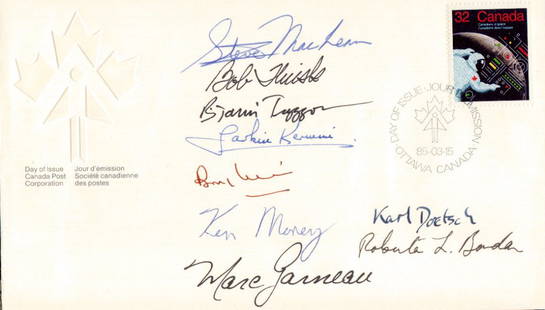 32 Canada
Canadians in space
Canadiens dans l'espace
DAY OF ISSUE JOUR D'ÉMISSION
85-03-15
OTTAWA CANADA
Day of Issue Jour d'émission
Canada Post Société canadienne
Corporation des postes
Steve MacLean
Bob Thirsk
Bjarni Tryggvason
Ken Money
Karl Doetsch
Roberta L. Bondar
Marc Garneau